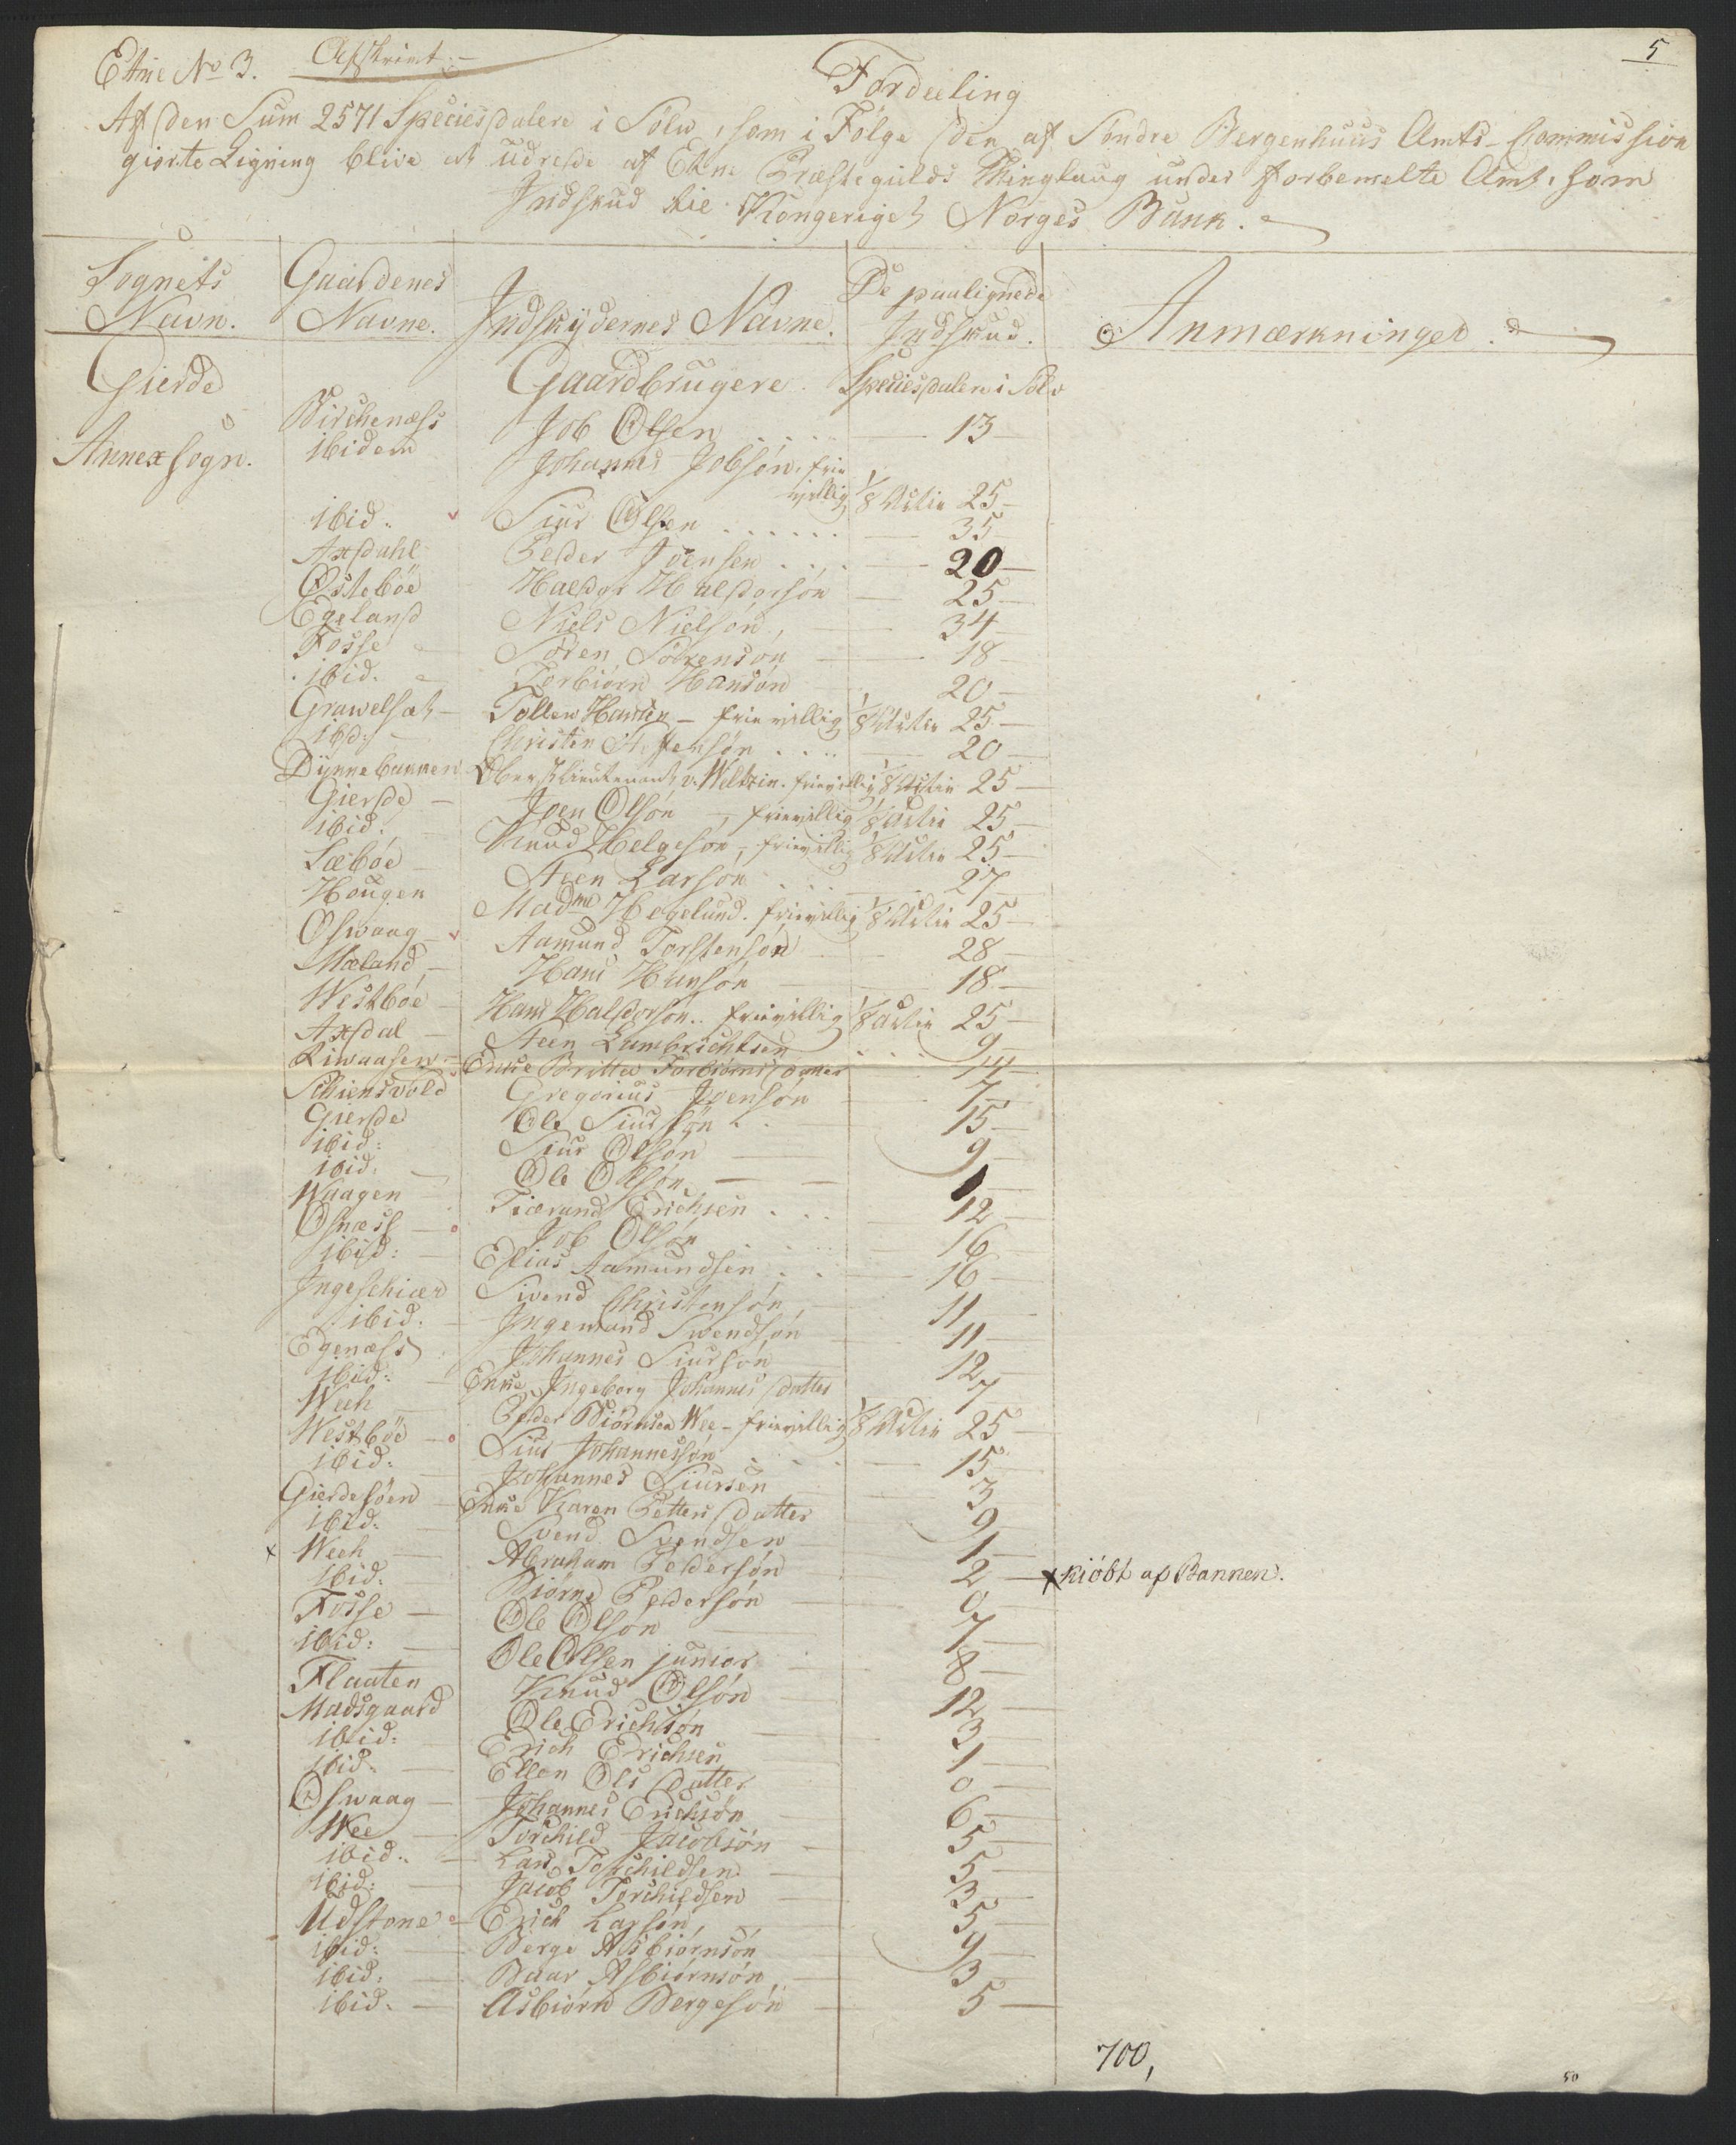 Etne No 3. Afskrivt. 5
Fordeeling
Af den Sum 2571 Speciesdalere i Sölw, som i Følge den af Söndre Bergenhuus Amts-Commission
giorte Ligning blive at udrede af Etne Præstegields Thinglaug under forbemelte Amt, som
Indskud til Kongeriget Norges Bank.
Sognets Navn. Gaardenes Navne. Indskydernes Navne. De paalignede Indskud. Anmærkninger.
Gierde Gaardbrugere. Speciesdaler i Sölv
Annex sogn. Birchenæss Job Olsen 13
ibidem Johannes Jobsøn, frie
villig 1/8 Actie 25
ibid: Siur Olsen 35
Axsdahl Peder Joensen 20
Østebøe Haldor Haldorsøn 25
Egeland Niels Nielsøn, 34
Fosse Søren Sörensøn 18
ibid. Torbiørn Hansøn 20
Grawelsæt Tollew Hansen - frievillig 1/8 Actie 25
ibd: Christen Steffensøn 20
Dynnebannen Oberstlieutenant v. Weltzin. frievillig 1/8 Actie 25
Gierde Joen Olsøn, frievillig 1/8 Actie 25
ibid. Knud Helgesøn, frievillig 1/8 Actie 25
Sæbøe Steen Larsøn 27
Hougen Madme Hegelund. frievillig 1/8 Actie 25
Oswaag Aamund Torstensøn 28
Mæland Hans Hansøn 18
Westbøe Hans Haldorsøn. frievillig 1/8 Actie 25
Axsdal Steen Lambrichtsen 9
Liwaasen Enke Britta Torbiørnsdatter 14
Schiensvold Gregorius Joensøn 7
Gierde Ole Siursøn 15
ibid: Siur Olsøn 9
ibid. Ole Olsøn 1
Waagen Tiærand Erichsen 12
Osnæss Job Olsøn 16
ibid: Elias Aamundsen 16
Ingeschiær Swend Christensøn, 11
ibid: Ingemund Swendsøn 11
Egenæss Johannes Siursøn 12
ibid: Enke Ingeborg Johannes datter 7
Weeh Peder Biørnsen Wee - frievillig 1/8 Actie 25
Westbøe Siur Johannessøn 15
ibid: Johannes Siursen 3
Gierdesøen Enke Karen Petters datter 9
ibid. Svend Svendsen 1
x Weeh Abraham Pedersøn 2 x kiöbt af Bannen.
ibid: Biørne Pedersøn 9
Fosse Ole Olsøn 7
ibid: Ole Olsen junior 8
Flaaten Knud Olsøn 12
Madsgaard Ole Erichsøn 3
ibid: Erich Erichsen 1
ibid. Ellen Ols datter 0
Oswaag Johannes Erichsøn 6
Wee Torchild Jacobsøn 5
ibid: Lars Torchildsen 5
ibid: Jacob Torchildsen 3
Udstone Erich Larsøn, 5
ibid: Berge Asbiørnsøn 9
ibid: Baar Asbiørnsøn 3
ibid. Asbiørn Bergesøn 5
700,
50